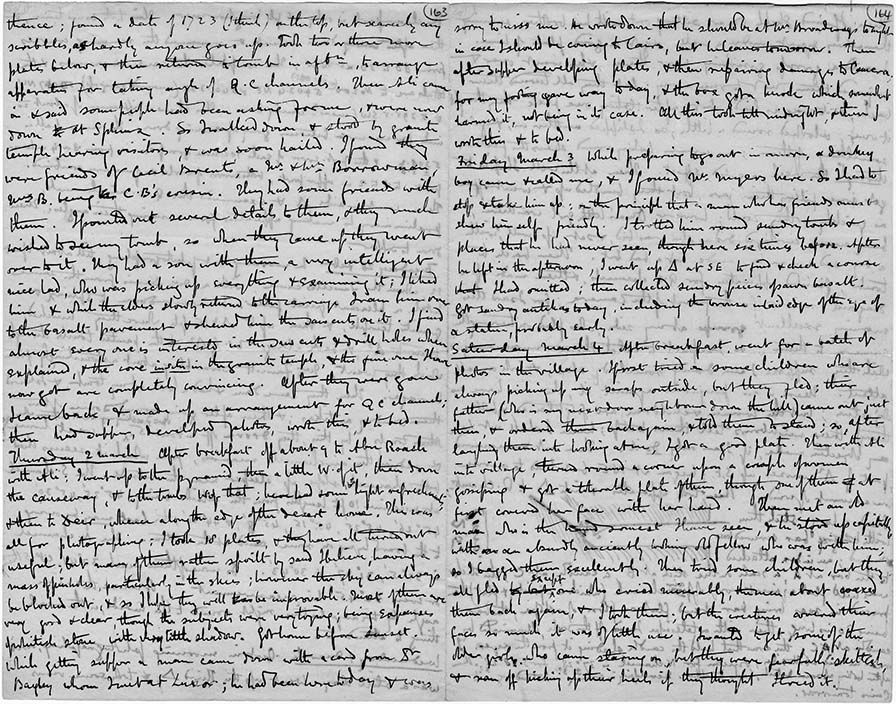 163
thence; found a date of 1723 (I think) on the top, but scarcely any
scribbles, as hardly anyone goes up. Took two or three more
plates below, & then returned to tomb in aftn, to arrange
apparatus for taking angle of Q.C channels. Then Ali came
in & said some people had been asking for me, & were now
down at Sphinx. So I walked down, & stood by granite
temple hearing visitors, & was soon hailed. I found they
were friends of Cecil Brent's, a Mr & Mrs Borrowman,
Mrs B. being C.B's cousin. They had some friends with
them. I pointed out several details to them, & they much
wished to see my tomb, so when they came up they went
over to it. They had a son with them, a very intelligent
nice lad, who was picking up everything & examining it; I liked
him & while the elders slowly returned to the carriage I ran him over
to the basalt pavement & shewed him the saw cuts on it. I find
almost every one is interested in the saw cuts & drill holes when
explained, & the core in the granite temple, & the fine one I have
now got are completely convincing. After they were gone
I came back & made up an arrangement for Q C channel;
then had supper, developed photos, wrote this, & to bed.
Thursday 2 March After breakfast off about 9 to Abu Roash
with Ali: I went up to the pyramid, then a little W. of it, then down
the causeway, & to the tombs W of that; here had some slight refreshment
& then to Deir, whence along the edge of the desert home. This was
all for photographing; I took 18 plates, & they have all turned out
useful; but many of them rather spoilt by sand I believe, having a
mass of pinholes, particularly in the skies; however the sky can always
be blocked out, & so I hope they will be improvable. Most of them are
very good & clear though the subjects were very trying; being expanses
of whitish stone with very little shadow. Got home before sunset.
While getting supper a man came down with a card from Dr
Bagley whom I met at Luxor; he had been here today & was
164
sorry to miss me. He wrote down that he should be at Mr Broadways tonight
in case I should be coming to Cairo, but he leaves tomorrow. Then
after supper developing plates, & then repairing damages to camera
for my footing gave way today, & the box got a knock which somewhat
harmed it, not being in its case. All this took till midnight, & then I
wrote this & to bed.
Friday March 3 While preparing to go out in, a donkey
boy came & called me, & I found Mr Myers here. So I had to
stop & take him up; on the principle that a man who has friends must
shew himself friendly. I trotted him round sundry tombs &
places that he had never seen, though here six times before. After
he left in the afternoon, I went up Δ at SE to find & check a course
that I had omitted; then collected sundry pieces of sawn basalt.
Got sundry antikas today, including the bronze inlaid edge of the eye of
a statue probably early.
Saturday March 4 After breakfast, went for a batch of
photos in the village. I first tried on some children who are
always picking up my scraps outside, but they fled; their
father (who is my next door neighbour down the hill) came out just
then, & ordered them back again, & told them to stand; so after
laughing them into looking at me, I got a good plate. Then with Ali
into village turned round a corner upon a couple of women
gossiping & got a tolerable plate of them, though one of them at
first covered her face with her hand. Then met an old
man who is the I have seen, & he stood up capitally
with an absurdly anciently looking old fellow who was with him,
so I bagged them excellently. Then tried some children, but they
all fled except one who cried miserably, the men about
them back again, & I took them; but the creatures covered their
faces so much it was of little use. I wanted to get some of the
older girls, who came staring on, but they were fearfully skittish,
& ran off picking up their heels if they thought I loved it.